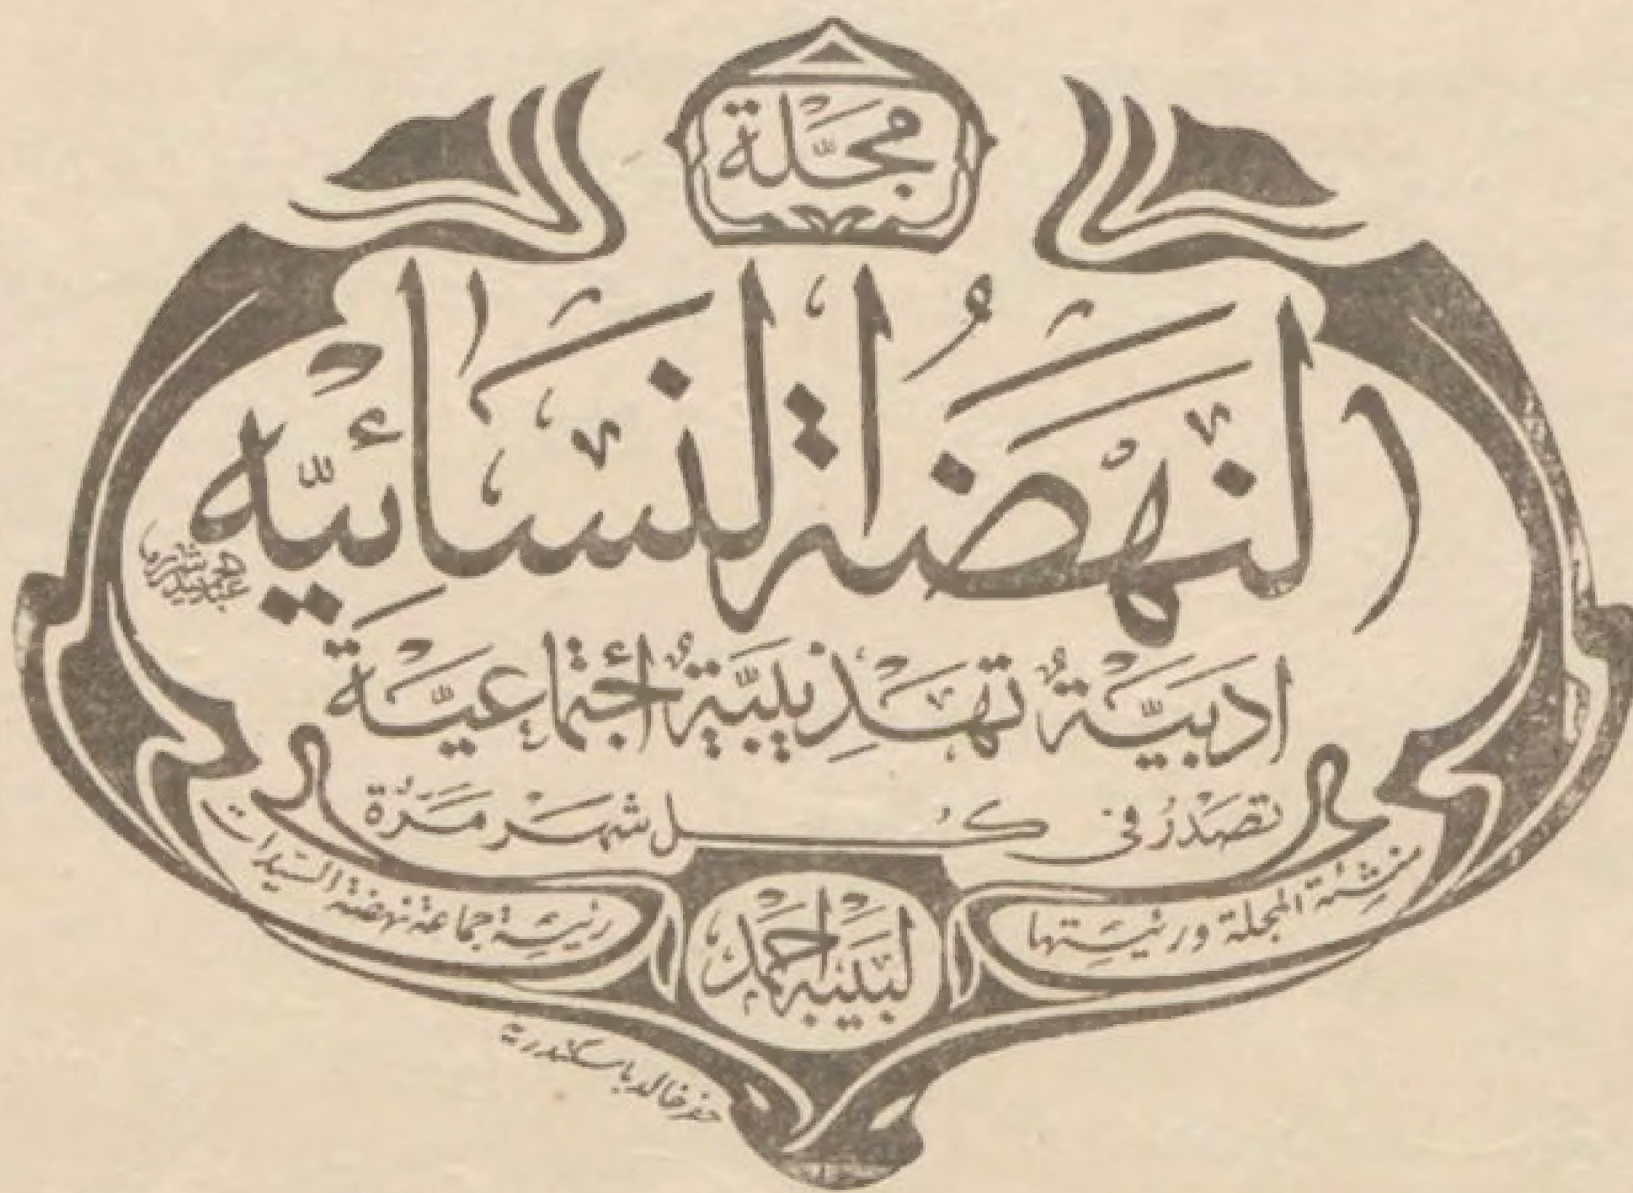 مجلة
النهضة النسائية
ادبية تهذيبية اجتماعية
تصدر فى كل شهر مرة
منشئة المجلة ورئيستها
لبيبه احمد
رئيسة جماعة نهضة السيدات
حفر خالد باسكندرية